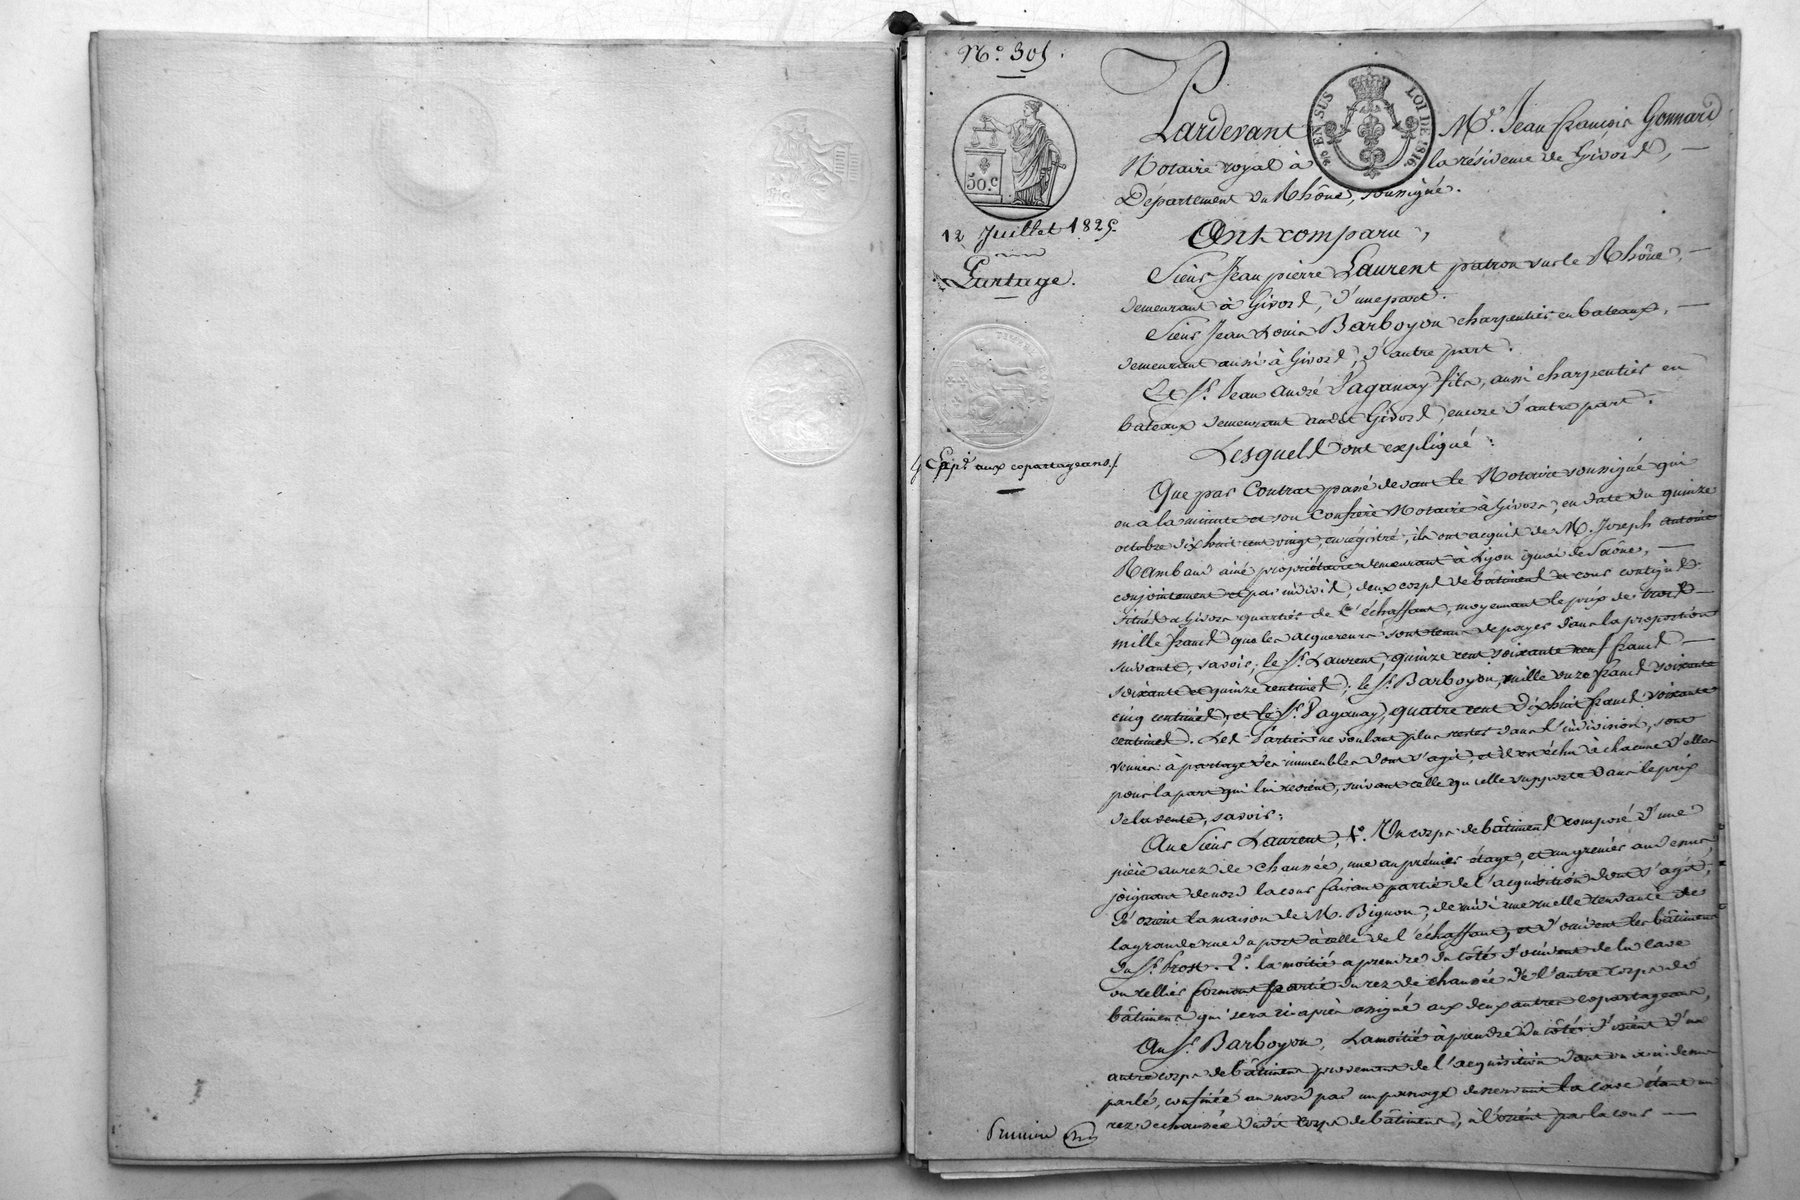 N.° 305.
50.c
EN SUS
LOI DE 1816
12 Juillet 1825.
Partage.
Exp.on aux copartageans./.
Pardevant M.e Jean françois Gonnard
Notaire royal à la résidence de Givors,
Département du Rhône, soussigné.
Ont comparu,
Sieur Jean pierre Laurent patron sur le Rhône,
demeurant à Givors, d'une part.
Sieur Jean Louis Barboyon charpentier en bateaux,
demeurant aussi à Givors, d'autre part.
Et S.r Jean André Paganay fils, aussi charpentier en
bateaux demeurant audit Givors, encore d'autre part.
Lesquels ont expliqué :
Que par Contrat passé devant le Notaire soussigné qui
en a la minute et son Confrère Notaire à Givors, en date du quinze
octobre dix huit cent vingt, enregistré, ils ont acquis de M. Joseph antoine
Rambaud ainé propriétaire demeurant à Lyon quai de Saône,
conjointement et par indivis, deux corps de bâtiments et cour contigus
situés à Givors quartier de l'échaffaut, moyennant le prix de trois
mille francs que les acquereurs sont tenus de payer dans la proportion
suivante, savoir; le S.r Laurent, quinze cent soixante neuf francs
soixante et quinze centimes; le S.r Barboyon, mille onze francs soixante
cinq centimes, et le S.r Paganay, quatre cent dix huit francs soixante
centimes. Les Parties ne voulant plus rester dans l'indivision, sont
venues à partage des immeubles dont s'agit, et il est échu à chacune d'elles
pour la part qui lui revient, suivant celle qu'elle supporte dans le prix
de la vente, savoir:
Au Sieur Laurent, 1.° Un corps de bâtiment composé d'une
pièce au rez de chaussée, une au prémier étage, et un grenier au dessus,
joignant de nord la cour faisant partie de l'acquisition dont s'agit,
d'orient la maison de M. Bignon, de midi une ruelle tendante de
la grande rue du port à celle de l'échaffaut, et d'occident les bâtimens
du S.r Prost. 2.° la moitié à prendre du côté d'occident de la cave
ou cellier formant partie du rez de chaussée de l'autre corps de
bâtiment qui sera ci-après assigné aux deux autres copartageans,
Au S.r Barboyon, La moitié à prendre du côté d'orient d'un
autre corps de bâtiment provenant de l'acquisition dont on a ci dessus
parlé, confinée au nord par un passage desservant la cave étant au
rez de chaussée dudit corps de bâtiment, à l'orient par la cour